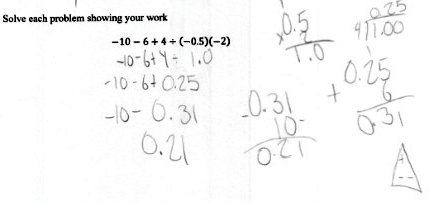 Solve each problem showing your work
-10 - 6 + 4 ÷ (-0.5)(-2)
-10-6+4÷ 1.0
-10-6+0.25
-10- 0.31
0.21
0.5
x 2
1.0
0.25
4)1.00
0.25
+ 6
0.31
-0.31
10-
0.21